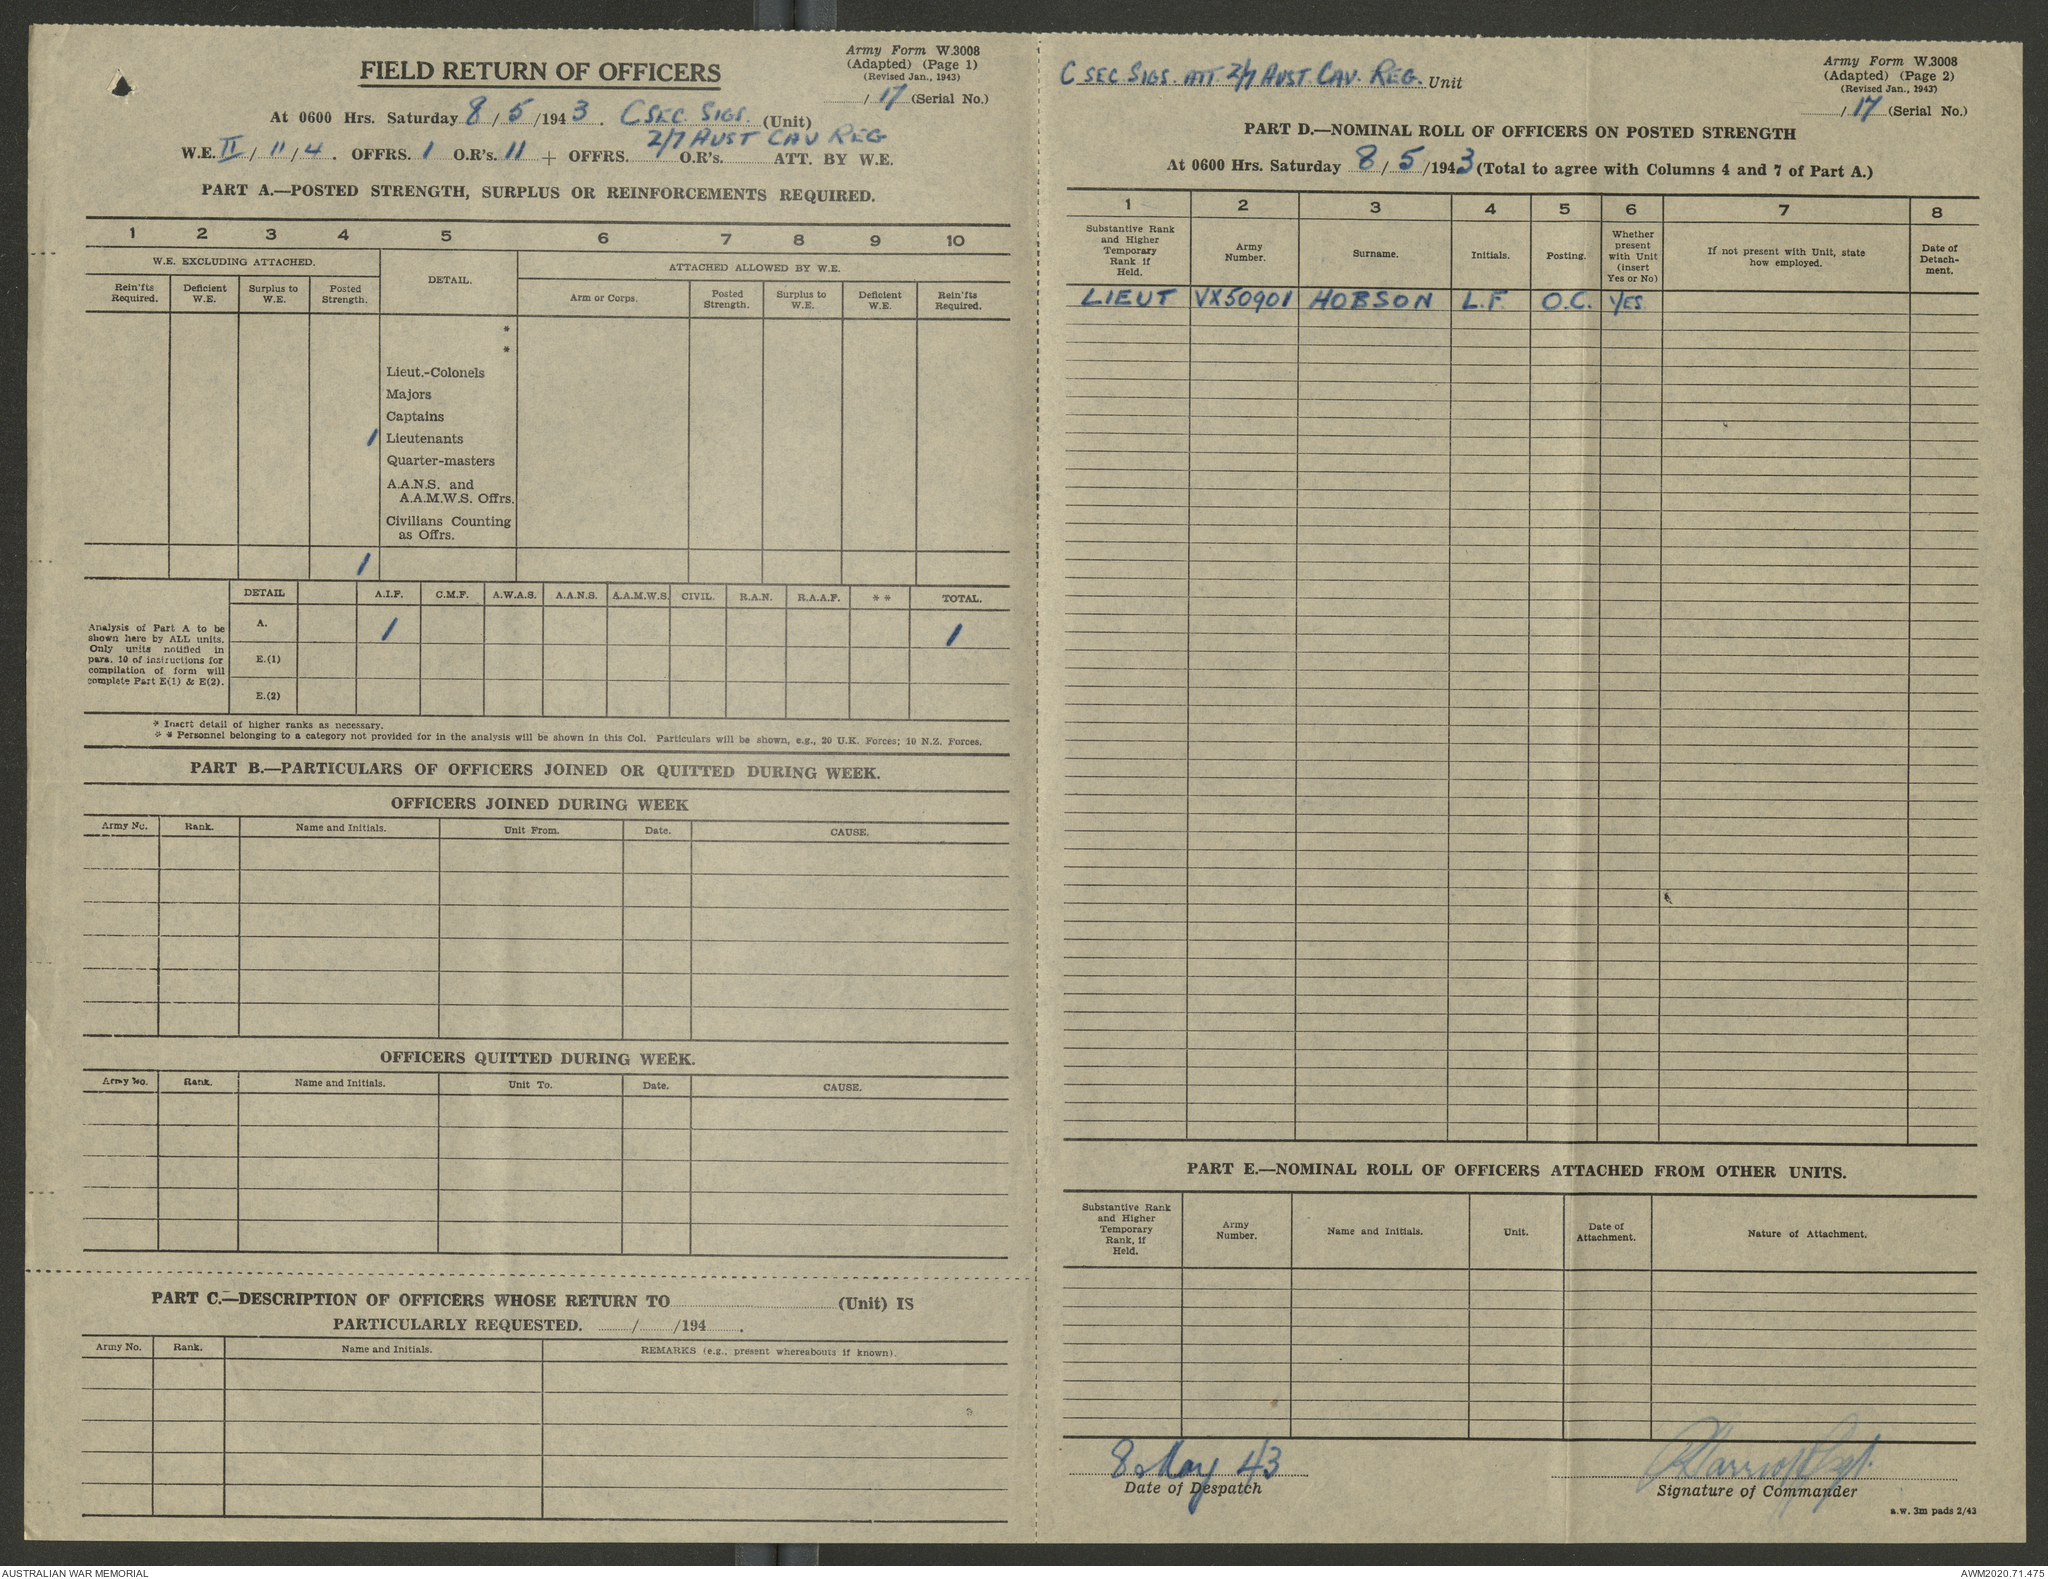 FIELD RETURN OF OFFICERS
Army Form W.3008
(Adapted) (Page 1)
(Revised Jan., 1943)
/ 17 (Serial No.)
At 0600 Hrs. Saturday 8 / 5 /1943. C SEC. SIGS. (Unit)
2/7 AUST CAV REG
W.E. II / 11 / 4 . OFFRS. 1 O.R's. 11 + OFFRS. O.R's. ATT. BY W.E.
PART A.—POSTED STRENGTH, SURPLUS OR REINFORCEMENTS REQUIRED.
1 2 3 4 5 6 7 8 9 10
W.E. EXCLUDING ATTACHED. DETAIL. ATTACHED ALLOWED BY W.E.
Rein'fts Required. Deficient W.E. Surplus to W.E. Posted Strength. Arm or Corps. Posted Strength. Surplus to W.E. Deficient W.E. Rein'fts Required.
*
*
Lieut.-Colonels
Majors
Captains
1 Lieutenants
Quarter-masters
A.A.N.S. and
A.A.M.W.S. Offrs.
Civilians Counting
as Offrs.
1
DETAIL A.I.F. C.M.F. A.W.A.S. A.A.N.S. A.A.M.W.S. CIVIL. R.A.N. R.A.A.F. * * TOTAL.
Analysis of Part A to be
shown here by ALL units.
Only units notified in
para. 10 of instructions for
compilation of form will
complete Part E(1) & E(2).
A. 1 1
E.(1)
E.(2)
* Insert detail of higher ranks as necessary.
* * Personnel belonging to a category not provided for in the analysis will be shown in this Col. Particulars will be shown, e.g., 20 U.K. Forces; 10 N.Z. Forces.
PART B.—PARTICULARS OF OFFICERS JOINED OR QUITTED DURING WEEK.
OFFICERS JOINED DURING WEEK
Army No. Rank. Name and Initials. Unit From. Date. CAUSE.
OFFICERS QUITTED DURING WEEK.
Army No. Rank. Name and Initials. Unit To. Date. CAUSE.
PART C.—DESCRIPTION OF OFFICERS WHOSE RETURN TO (Unit) IS
PARTICULARLY REQUESTED. / /194 .
Army No. Rank. Name and Initials. REMARKS (e.g., present whereabouts if known).
C SEC SIGS. ATT. 2/7 AUST. CAV. REG. Unit
Army Form W.3008
(Adapted) (Page 2)
(Revised Jan., 1943)
/ 17 (Serial No.)
PART D.—NOMINAL ROLL OF OFFICERS ON POSTED STRENGTH
At 0600 Hrs. Saturday 8 / 5 /1943 (Total to agree with Columns 4 and 7 of Part A.)
1 2 3 4 5 6 7 8
Substantive Rank and Higher Temporary Rank if Held. Army Number. Surname. Initials. Posting. Whether present with Unit (insert Yes or No) If not present with Unit, state how employed. Date of Detachment.
LIEUT VX50901 HOBSON L.F. O.C. YES
PART E.—NOMINAL ROLL OF OFFICERS ATTACHED FROM OTHER UNITS.
Substantive Rank and Higher Temporary Rank, if Held. Army Number. Name and Initials. Unit. Date of Attachment. Nature of Attachment.
8 May 43
Date of Despatch
Signature of Commander
a.w. 3m pads 2/43
AUSTRALIAN WAR MEMORIAL
AWM2020.71.475